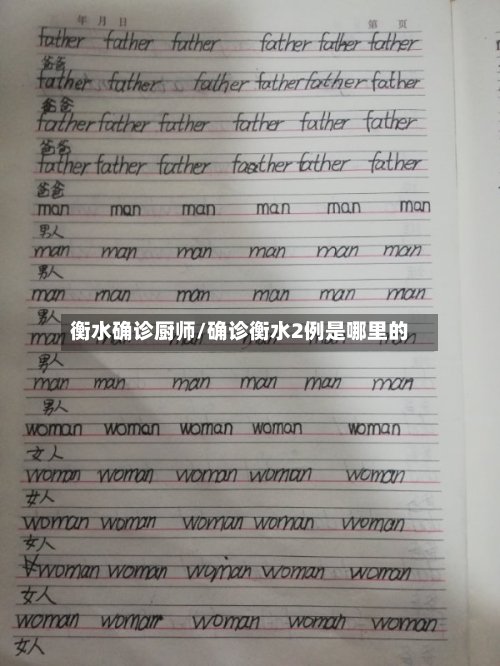 年 月 日 第 页
father father father father father father
爸爸
father father father father father father
爸爸
father father father father father father
爸爸
father father father faather father father
爸爸
man man man man man man
男人
man man man man man man
男人
man man man man man man
男人
衡水确诊厨师/确诊衡水2例是哪里的
男人
man man man man man man
男人
woman woman woman woman woman
女人
woman woman woman woman woman
女人
woman woman woman woman woman
女人
woman woman woman woman woman
女人
woman woman woman woman woman
女人